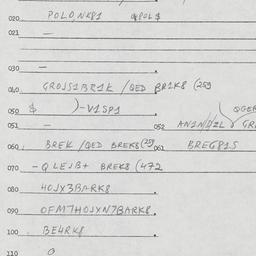 020 POLO,NK81
021 —
030 —
040 GROJS1BR1K /QED BR1K8 (259
050 $ )-V1SP1
051 — 052
060 BREK /QED BREK8 (259 061 BREG815
070 -QLEJB+ BREK8 (472
080 4OJX3BARK8
090 OFM7HOJXN7BARK8
100 BE4RK8
110 0